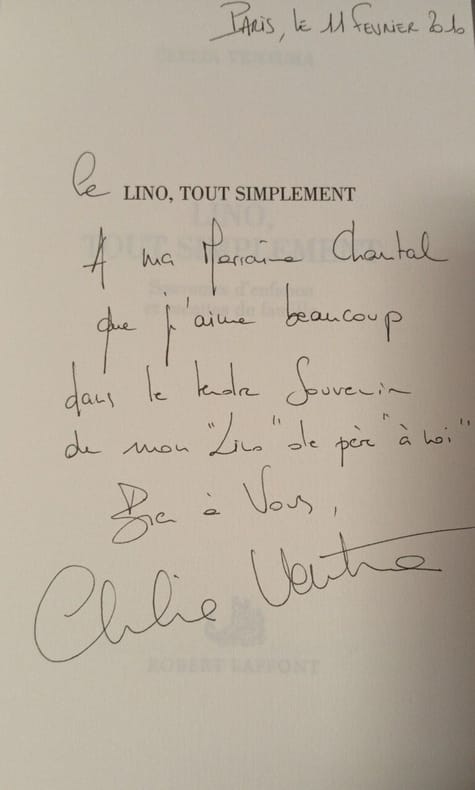 PARIS, le 11 FEVRIER 2010
CLELIA VENTURA
le LINO, TOUT SIMPLEMENT
LINO,
TOUT SIMPLEMENT
A ma Marraine Chantal
Souvenirs d'enfance
que j'aime beaucoup
dans le tendre Souvenir
de mon "Lino" de père "à moi"
Bien à Vous,
Clélia Ventura
ROBERT LAFFONT